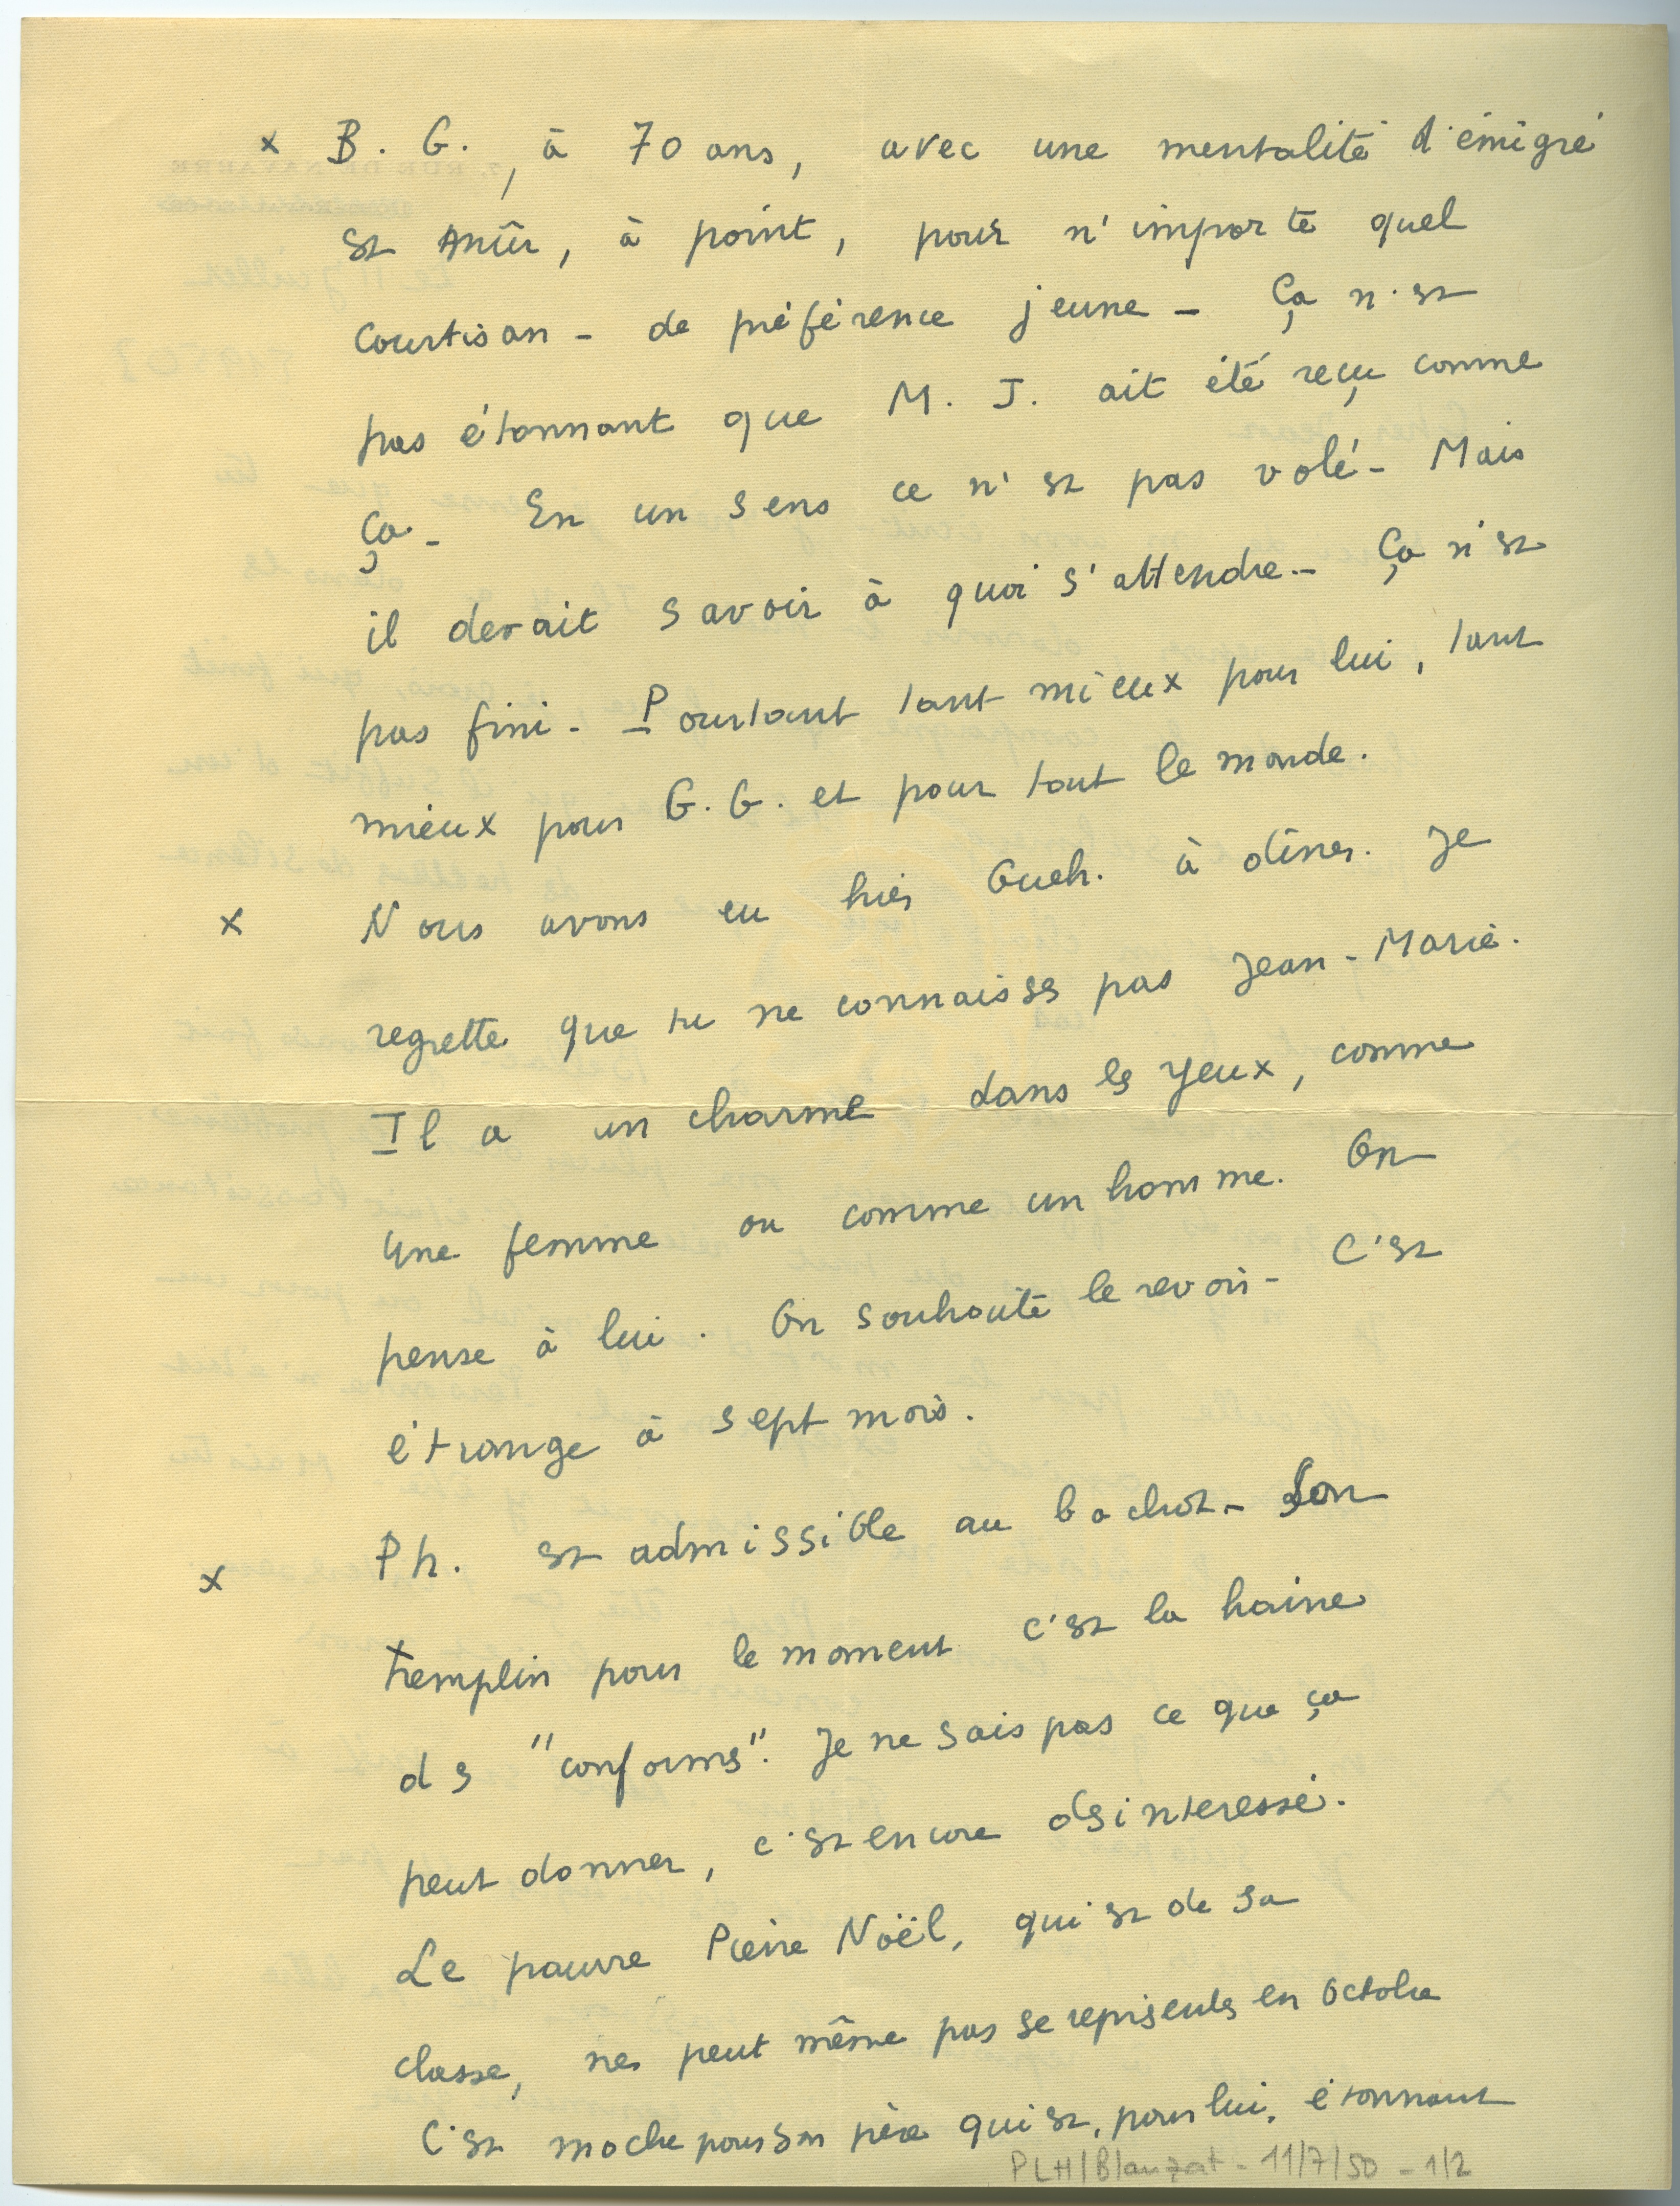 x B. G., à 70 ans, avec une mentalité d'émigré
est mûr, à point, pour n'importe quel
courtisan - de préférence jeune - Ça n'est
pas étonnant que M. J. ait été reçu comme
ça - En un sens ce n'est pas volé - Mais
il devait savoir à quoi s'attendre - Ça n'est
pas fini - Pourtant tant mieux pour lui, tant
mieux pour G. G. et pour tout le monde.
x Nous avons eu hier Gueh. à dîner. Je
regrette que tu ne connaisses pas Jean-Marie.
Il a un charme dans les yeux, comme
une femme ou comme un homme. On
pense à lui. On souhaite le revoir - C'est
étrange à sept mois.
x Ph. est admissible au bachot - Son
tremplin pour le moment c'est la haine
des "conforms". Je ne sais pas ce que ça
peut donner, c'est encore désintéressé.
Le pauvre Pierre Noël, qui est de sa
classe, ne peut même pas se représenter en Octobre
C'est moche pour son père qui est, pour lui, étonnant
PLH/Blanzat - 11/7/50 - 1/2